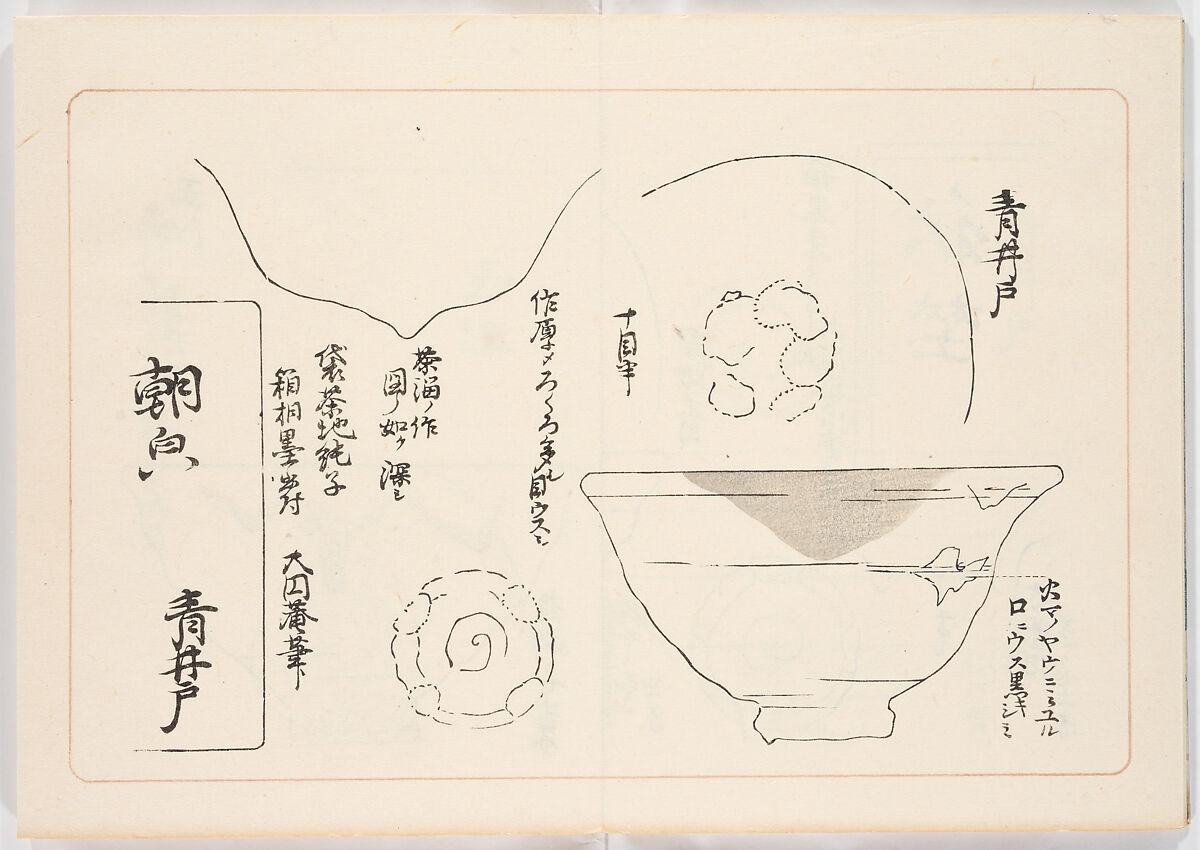 青井戸
十目半
火マヤウニミユル
ロニウス黒浅ミ
作厚メろくろ多ル目ウスミ
茶溜ノ作
図ノ如ク深ミ
袋茶地純子
箱桐墨書付
大囙菴筆
青井戸